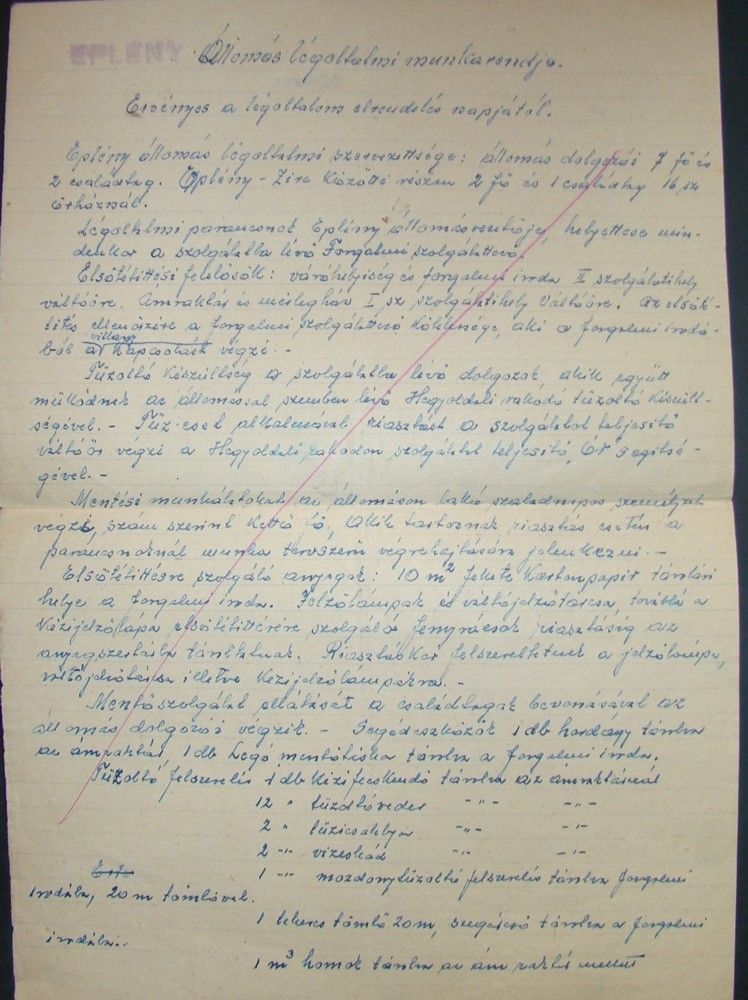 EPLÉNY Állomás légoltalmi munkarendje.
Érvényes a légoltalom elrendelés napjától.
Eplény állomás légoltalmi szervezettsége: állomás dolgozói 7 fő és
2 családtag. Eplény - Zirc közötti részen 2 fő és 1 családtag 16. sz
őrháznál.
Légoltalmi parancsnok Eplény állomásvezetője, helyettese min-
denkor a szolgálatba lévő Forgalmi szolgálattevő.
Elsötétítési felelősök: váróhelyiség és forgalmi iroda II szolgálatihely
váltóőre. Áruraktár és melegház I. sz szolgálatihely Váltóőre. Az elsöté-
títés ellenőrzése a forgalmi szolgálattevő kötelessége, aki a forgalmi irodá-
ból a villany kapcsolást végzi. -
Tűzoltó készültség a szolgálatba lévő dolgozók, akik együtt
működnek az állomással szemben lévő Hegyoldali rakodó tűzoltó készült-
ségével. - Tűz eset alkalmával riasztást a szolgálatot teljesítő
váltóőr végzi a Hegyoldali rakodón szolgálatot teljesítő "ŐR" segítsé-
gével. -
Mentési munkálatokat az állomáson lakó szabadnapos személyzet
végzi, szám szerint kettő fő, akik tartoznak riasztás esetén a
parancsnoknál munka tervszerű végrehajtására jelentkezni. -
Elsötétítésre szolgáló anyagok: 10 m² fekete kartonpapír tárolási
helye a forgalmi iroda. Jelzőlámpák és váltójelzőtárcsa, továbbá a
kézijelzőlámpa elsötétítésére szolgáló fényrácsok riasztásig az
anyagszertárba tároltatnak. Riasztáskor felszereltetnek a jelzőlámpa,
váltójelzőtárcsa illetve kézijelzőlámpákra. -
Mentőszolgálat ellátását a családtagok bevonásával az
állomás dolgozói végzik. - Segédeszközök 1 db hordágy tárolva
az áruraktár 1 db Légó mentőtáska tárolva a forgalmi iroda.
Tűzoltó felszerelés 1 db kézifecskendő tárolva az áruraktárnál
12 " tűzoltóveder -"- -"-
2 " tűzicsáklya -"- -"-
2 -"- vizeskád -"- -"-
1 -"- mozdonytűzoltó felszerelés tárolva forgalmi
irodába, 20 m tömlővel.
1 tekercs tömlő 20 m, sugárcső tárolva a forgalmi
irodába.
1 m³ homok tárolva az áru raktár mellett